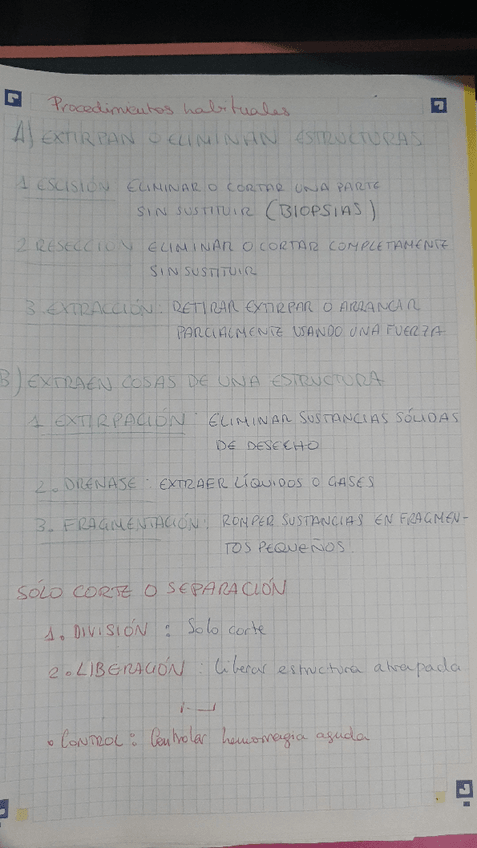 Procedimientos habituales
A) EXTIRPAN O ELIMINAN ESTRUCTURAS
1 ESCISIÓN ELIMINAR O CORTAR UNA PARTE
SIN SUSTITUIR (BIOPSIAS)
2 RESECCIÓN ELIMINAR O CORTAR COMPLETAMENTE
SIN SUSTITUIR
3. EXTRACCIÓN: RETIRAR EXTIRPAR O ARRANCAR
PARCIALMENTE USANDO UNA FUERZA
B) EXTRAEN COSAS DE UNA ESTRUCTURA
1 EXTIRPACIÓN: ELIMINAR SUSTANCIAS SÓLIDAS
DE DESECHO
2. DRENASE: EXTRAER LÍQUIDOS O GASES
3. FRAGMENTACIÓN: ROMPER SUSTANCIAS EN FRAGMEN-
TOS PEQUEÑOS.
SÓLO CORTE O SEPARACIÓN
1. DIVISIÓN: Solo corte
2. LIBERACIÓN: Liberar estructura atrapada
• CONTROL: Controlar hemorragia aguda